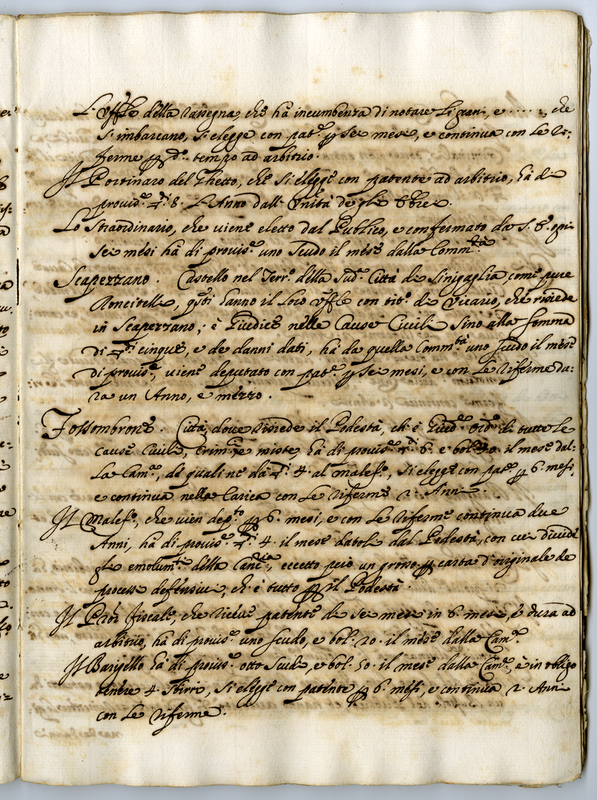 L'Uff.le della Rassegna, che hà incumbenza di notare li grani, e ......, che
s'imbarcano, si elegge con pat.e p sei mesi, e continua con le Ri-
ferme p d.o tempo ad arbitrio.
Il Portinaro del Ghetto, che si elegge con patente ad arbitrio, hà di
provis.e 8. L'Anno dall'Unità de gli Ebrei.
Lo Straordinario, che viene eletto dal Publico, e confermato da S. E. ogni
sei mesi hà di provis.e uno scudo il mese dalla Comm.tà
Scapezzano. Castello nel Terr.o della sud.a Città di Sinigaglia, come pure
Roncitelli, q.sti hanno il loro Uff.le con tit.o di Vicario, che risiede
in Scapezzano; è Giudice nelle Cause Civili sino alla somma
di cinque, e de danni dati, hà da quella Comm.tà uno scudo il mese
di provis.e, viene deputato con pat.e p sei mesi, e con le riferme du-
ra un Anno, e mezzo.
Fossombrone. Città, dove risiede il Podestà, ch'è Giud.e di tutte le
cause Civili, Crim.li e miste hà di provis.e 6. e bol. 20. il mese dal-
la Cam.a, de quali ne dà 4. al malef.o, si elegge con pat.e p 6. mesi,
e continua nella Carica con le riferme 2. Anni.
Il Malef.o, che vien dep.to p 6. mesi, e con le riferme continua due
Anni, hà di provis.e 4. il mese datoli dal Podestà, con cui divide
gli emolum.ti della Canc.ria, eccetto però un grosso p carta d'originale de
processi defensivi, ch'è tutto p il Podestà.
Il Proc.r fiscale, che riceve patente di sei mesi in 6. mesi, e dura ad
arbitrio, hà di provis.e uno scudo, e bol. 20. il mese dalla Cam.a
Il Bargello hà di provis.e otto scudi, e bol. 50. il mese dalla Cam.a, è in obligo
tenere 4. sbirri, si elegge con patente p 6. mesi, e continua 2. Anni
con le riferme.